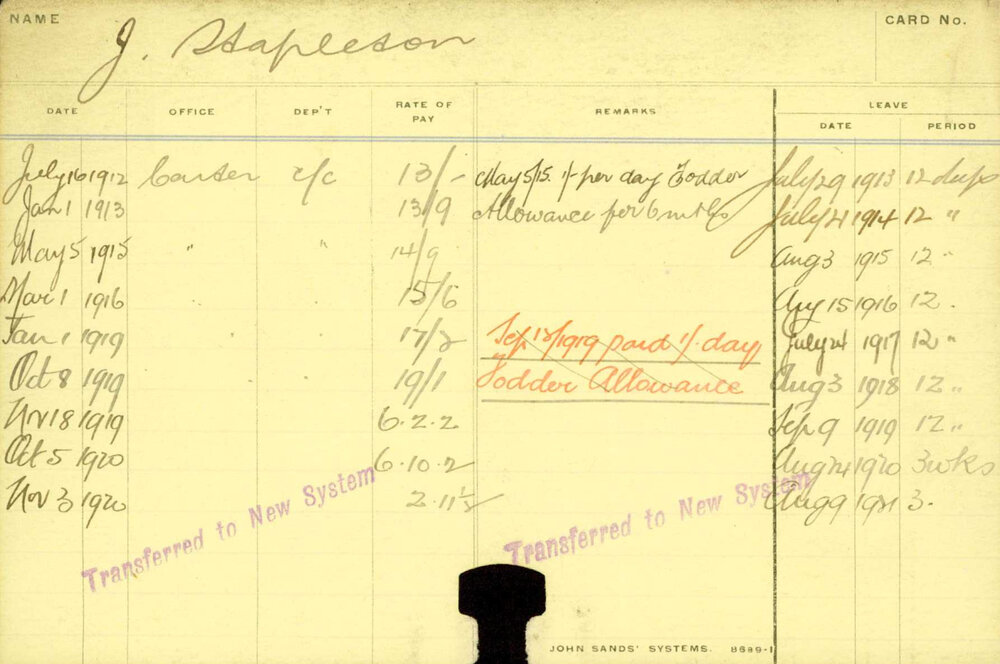 NAME J. Stapleton CARD No.
DATE OFFICE DEP'T RATE OF PAY REMARKS LEAVE
DATE PERIOD
July 16 1912 Carter c/c 13/- May 5/15. 1/- per day Fodder July 29 1913 12 days
Jan 1 1913 13/9 Allowance for 6 mths July 21 1914 12 "
May 5 1915 " " 14/9 Aug 3 1915 12 "
Mar 1 1916 15/6 1916 12 "
Jan 1 1919 17/2 Sep 12/1919 paid 1/- day July 24 1917 12 "
Oct 8 1919 19/1 Fodder Allowance Aug 3 1918 12 "
Nov 18 1919 6.2.2 Sep 9 1919 12 "
Oct 5 1920 6.10.2 Aug 24 1920 3 wks
Nov 3 1920 2.11½ Aug 9 1921 3 "
Transferred to New System Transferred to New System
JOHN SANDS' SYSTEMS. 8689-1